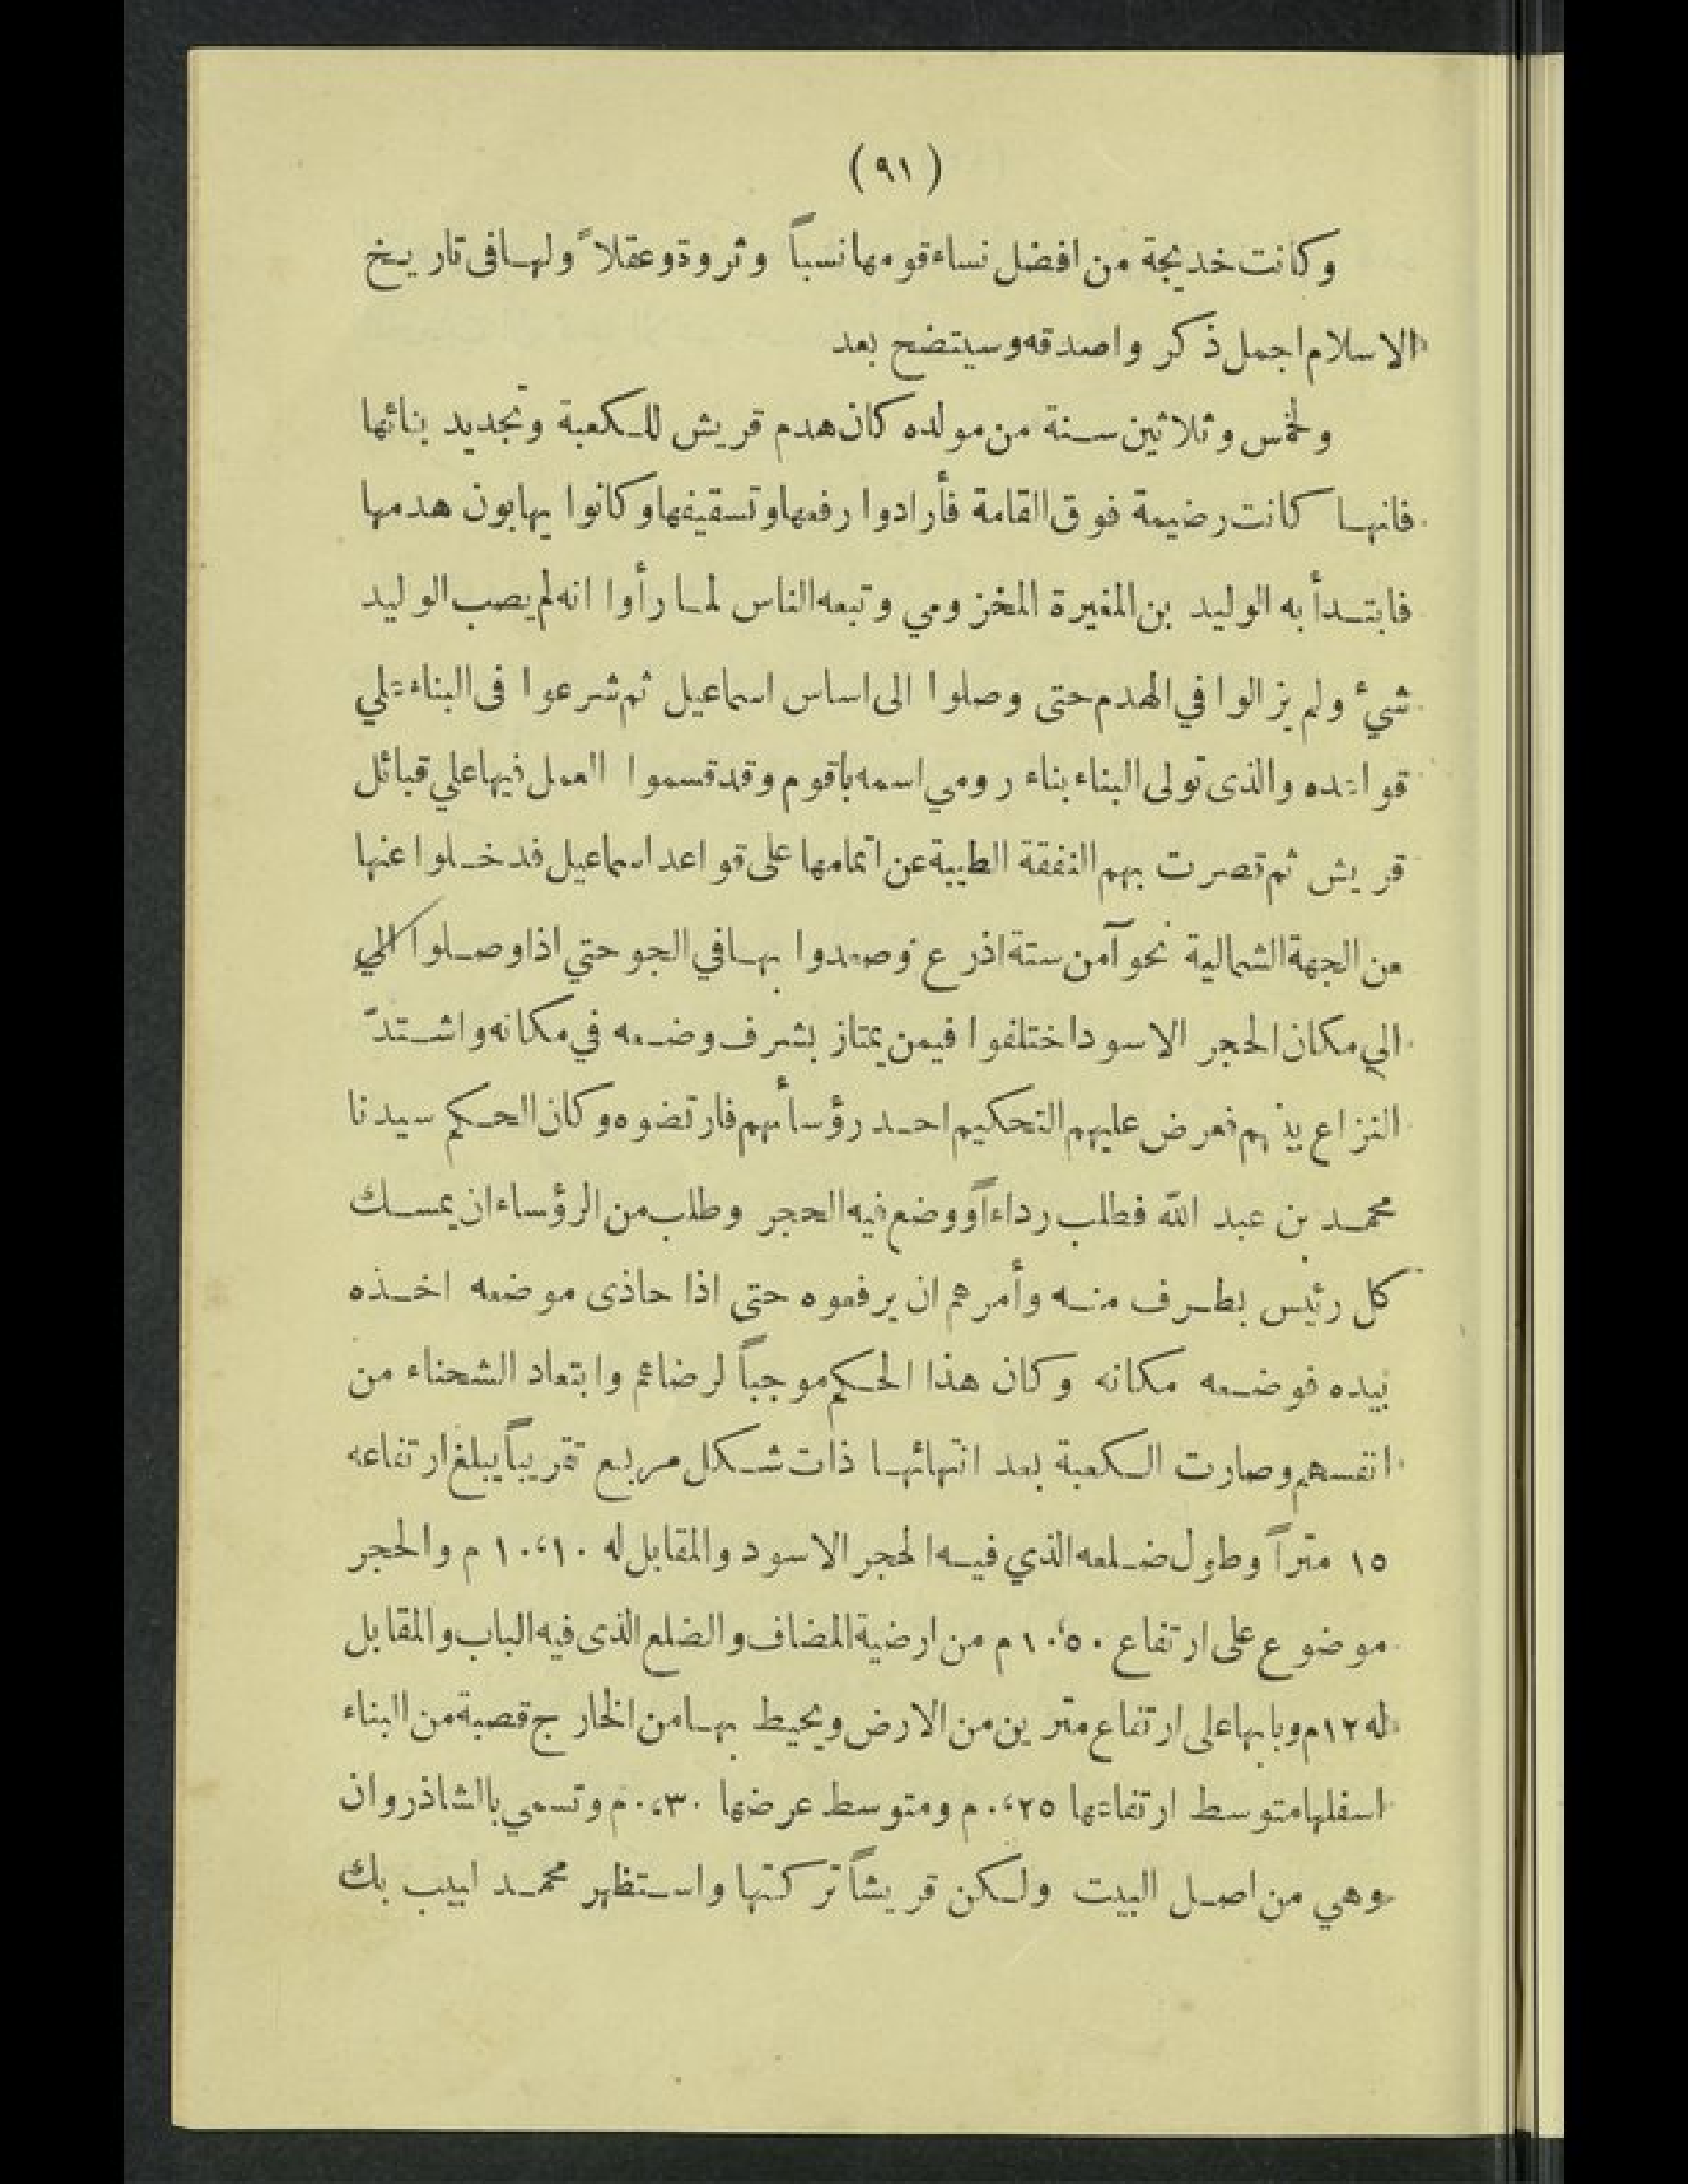 (٩١)
وكانت خديجة من افضل نساء قومها نسباً وثروة وعقلاً ولها فى تاريخ
الاسلام اجمل ذكر واصدقه وسيتضح بعد
ولخمس وثلاثين سنة من مولده كان هدم قريش للكعبة وتجديد بنائها
فانها كانت رضيمة فوق القامة فأرادوا رفعها وتسقيفها وكانوا يهابون هدمها
فابتدأ به الوليد بن المغيرة المخزومي وتبعه الناس لما رأوا انه لم يصب الوليد
شيء ولم يزالوا في الهدم حتى وصلوا الى اساس اسماعيل ثم شرعوا فى البناء علي
قواعده والذى تولى البناء بناء رومي اسمه باقوم وقد قسموا العمل فيها علي قبائل
قريش ثم قصرت بهم النفقة الطيبة عن اتمامها على قواعد اسماعيل فدخلوا عنها
من الجهة الشمالية نحوآ من ستة اذرع وصعدوا بها في الجو حتي اذا وصلوا الي
الي مكان الحجر الاسود اختلفوا فيمن يمتاز بشرف وضعه في مكانه واشتدّ
النزاع بينهم فعرض عليهم التحكيم احد رؤسأهم فارتضوه وكان الحكم سيدنا
محمد بن عبد الله فطلب رداءاً ووضع فيه الحجر وطلب من الرؤساء ان يمسك
كل رئيس بطرف منه وأمرهم ان يرفعوه حتى اذا حاذى موضعه اخذه
بيده فوضعه مكانه وكان هذا الحكم موجباً لرضائهم وابتعاد الشحناء من
انفسهم وصارت الكعبة بعد انتهائها ذات شكل مربع تقريباً يبلغ ارتفاعه
١٥ متراً وطول ضلعه الذي فيه الحجر الاسود والمقابل له ١٠،١٠ م والحجر
موضوع على ارتفاع ١٠،٥٠ م من ارضية المضاف والضلع الذى فيه الباب والمقابل
له ١٢م وبابها على ارتفاع مترين من الارض ويحيط بها من الخارج قصبة من البناء
اسفلها متوسط ارتفاعها ٠،٢٥ م ومتوسط عرضها ٠،٣٠م وتسمي بالشاذروان
وهي من اصل البيت ولكن قريشاً تركتها واستظهر محمد لبيب بك